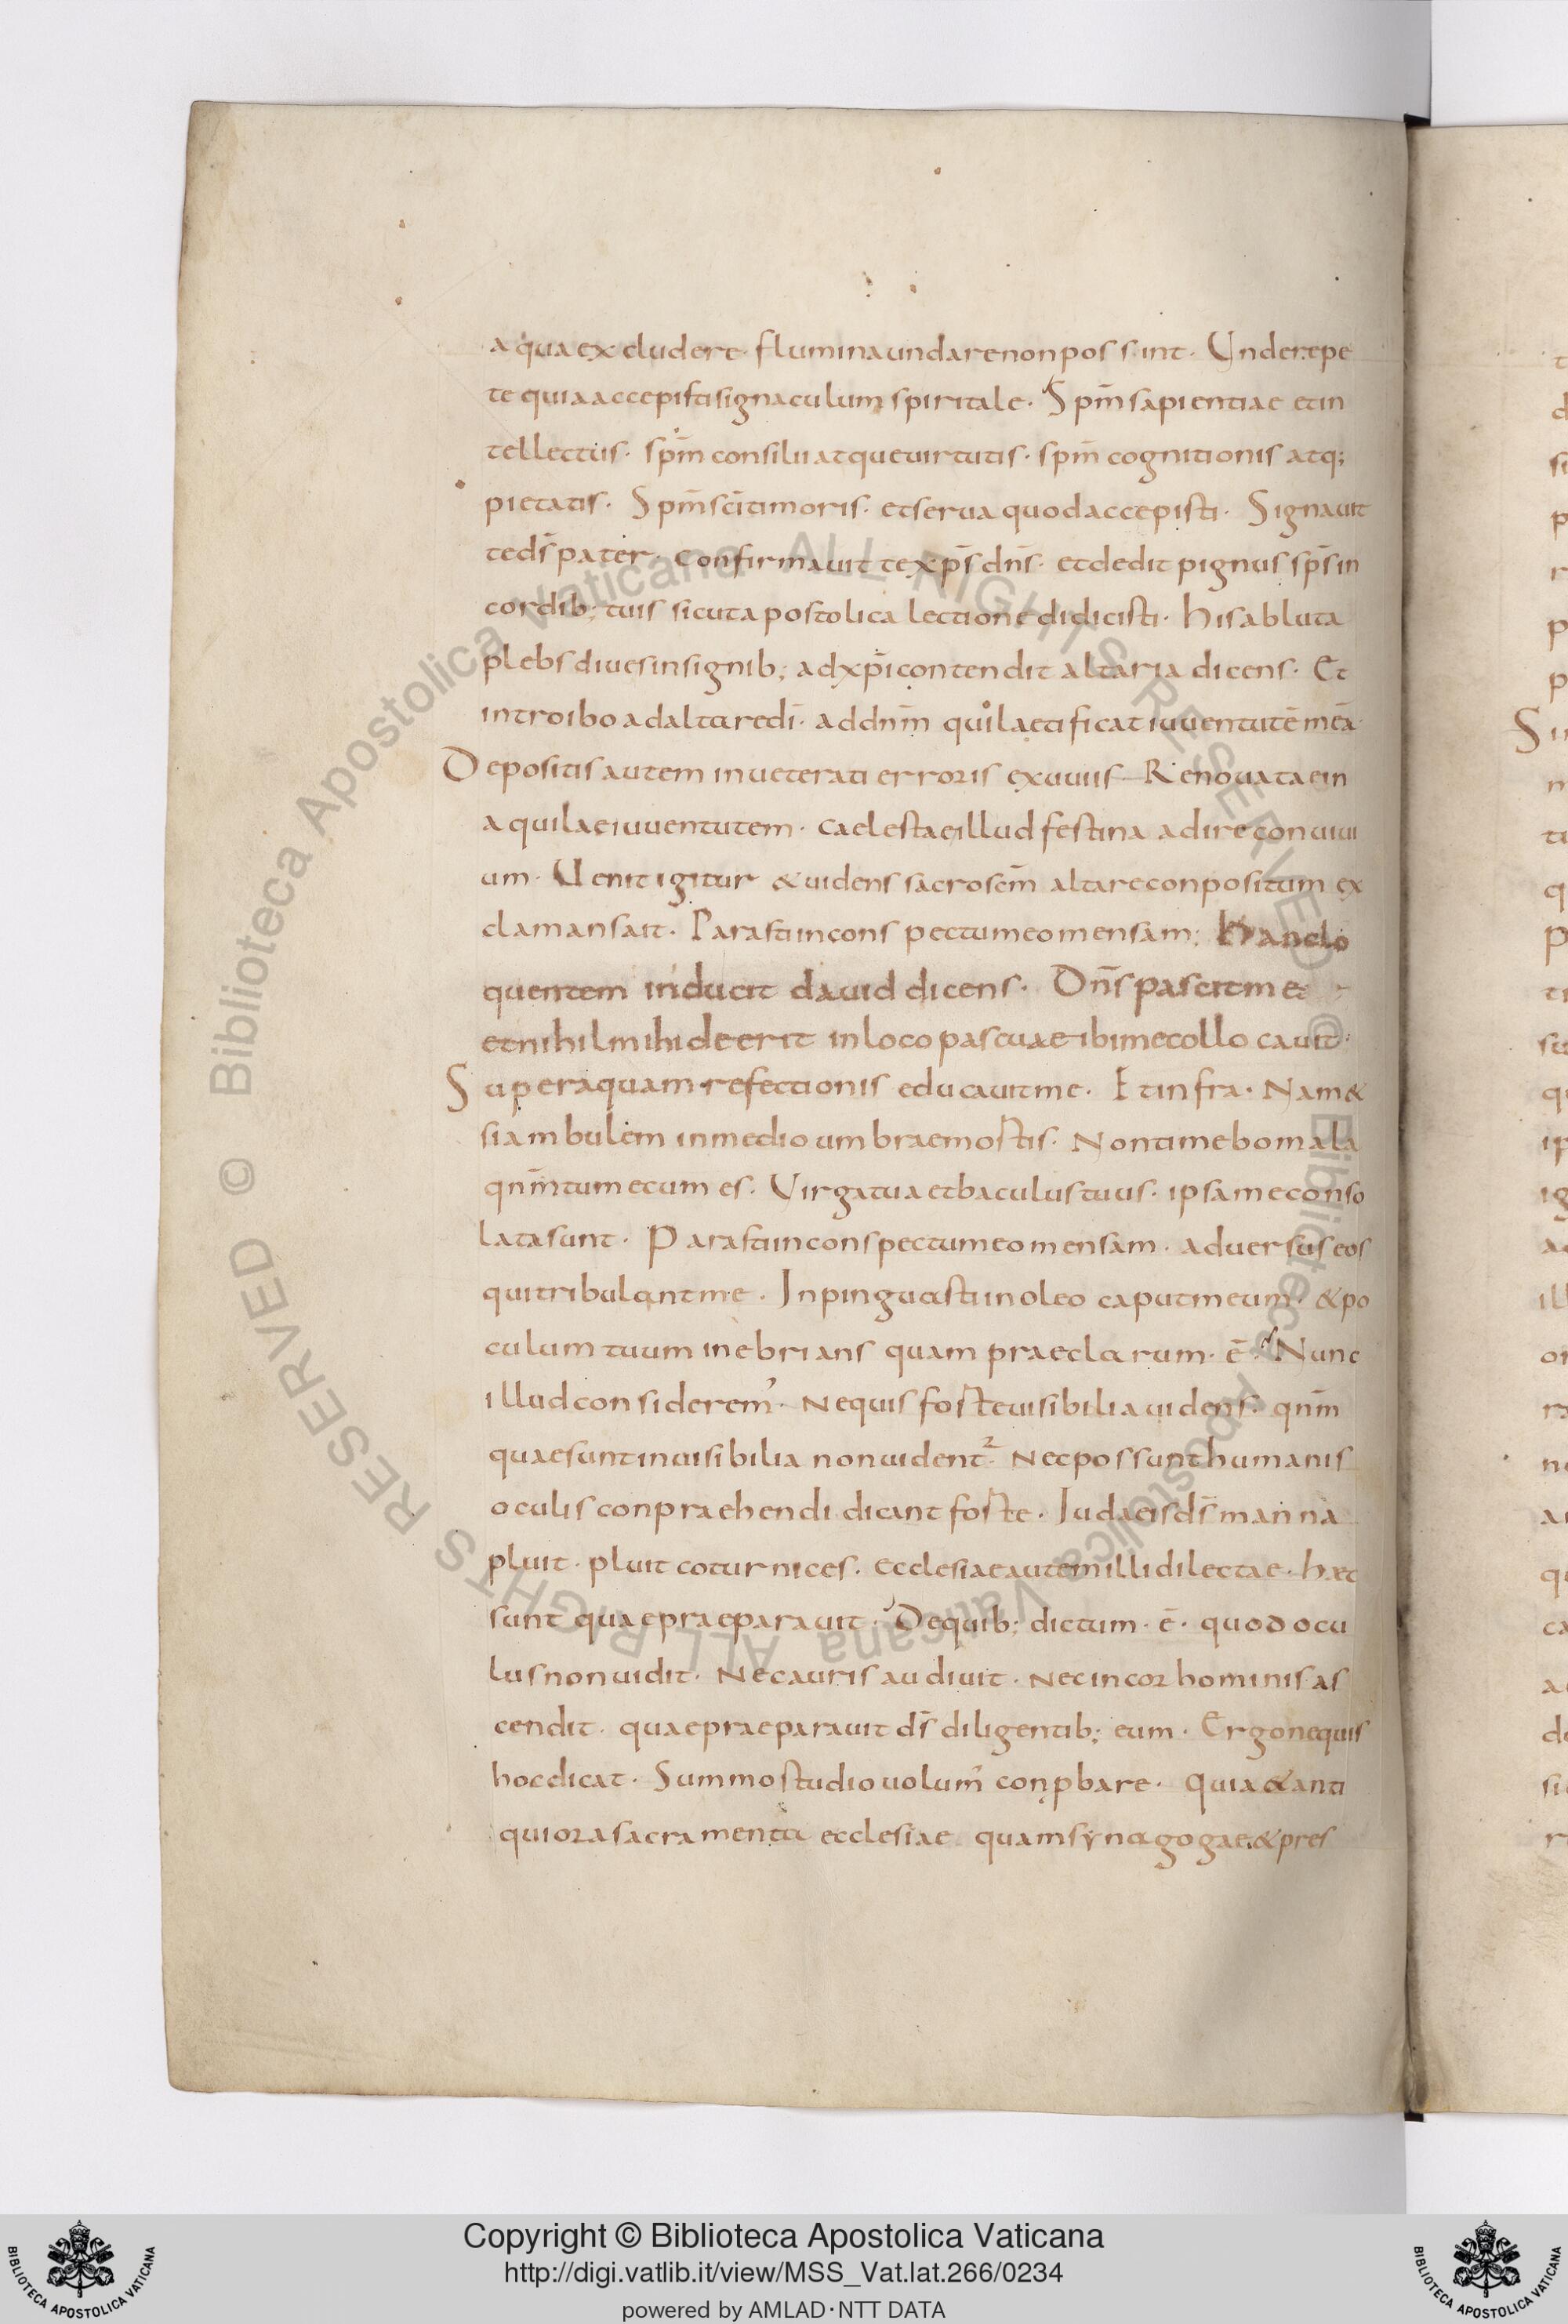 aqua excludere· flumina undare non possint· Unde repe
te quia accepisti signaculum spiritale· Spm̄ sapientiae et in
tellectus· spm̄ consilii atque uirtutis· spm̄ cognitionis atq;
pietatis· Spm̄ sc̄i timoris· et serua quod accepisti· Signauit
te ds̄ pater· confirmauit te xp̄s dn̄s· et dedit pignus sp̄s in
cordib; tuis sicut apostolica lectione didicisti· His abluta
plebs diues insignib; ad xp̄i contendit altaria dicens· Et
introibo ad altare dī· ad dn̄m qui laetificat iuuentutē meā·
Depositis autem inueterati erroris exuuiis Renouatae in
aquilae iuuentutem· caelestae illud festina adire conuiui
um· Uenit igitur & uidens sacrosc̄m altare conpositum ex
clamans ait· Parasti in conspectu meo mensam; Hanc lo
quentem inducit dauid dicens· Dn̄s pascit me
et nihil mihi deerit in loco pascuae ibi me collocauit·
Super aquam refectionis educauit me· Et infra· Nam &
si ambulem in medio umbrae mortis· Non timebo mala
qn̄m tu mecum es· Virga tua et baculus tuus· ipsa me conso
lata sunt· Parasti in conspectu meo mensam· aduersus eos
qui tribulant me· Inpinguasti in oleo caput meum· & po
culum tuum inebrians quam praeclarum· ē· Nunc
illud considerem᾽· Ne quis forte uisibilia uidens· qn̄m
quae sunt inuisibilia non uident᷑· Nec possunt humanis
oculis conpraehendi dicant forte· Iudaeis ds̄ manna
pluit· pluit coturnices· Ecclesiae autem illi dilectae· haec
sunt quae praeparauit· De quib; dictum· ē· quod ocu
lus non uidit· Nec auris audiuit· Nec in cor hominis as
cendit· quae praeparauit ds̄ diligentib; eum· Ergo ne quis
hoc dicat· Summo studio uolum᾽ conꝓbare· quia & anti
quiora sacramenta ecclesiae quam synagogae & pres
Copyright © Biblioteca Apostolica Vaticana
http://digi.vatlib.it/view/MSS_Vat.lat.266/0234
powered by AMLAD·NTT DATA
BIBLIOTECA APOSTOLICA VATICANA
BIBLIOTECA APOSTOLICA VATICANA
© Biblioteca Apostolica Vaticana ALL RIGHTS RESERVED © Biblioteca Apostolica Vaticana ALL RIGHTS RESERVED